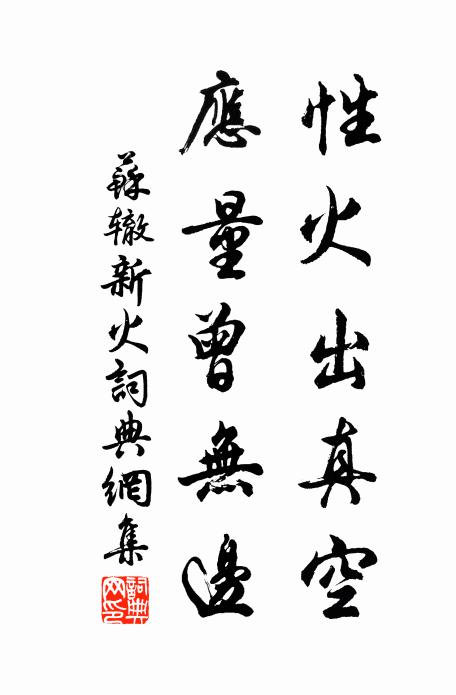 性火出真空
應量曾無邊
蘇轍新火詞典網集
詞典網印